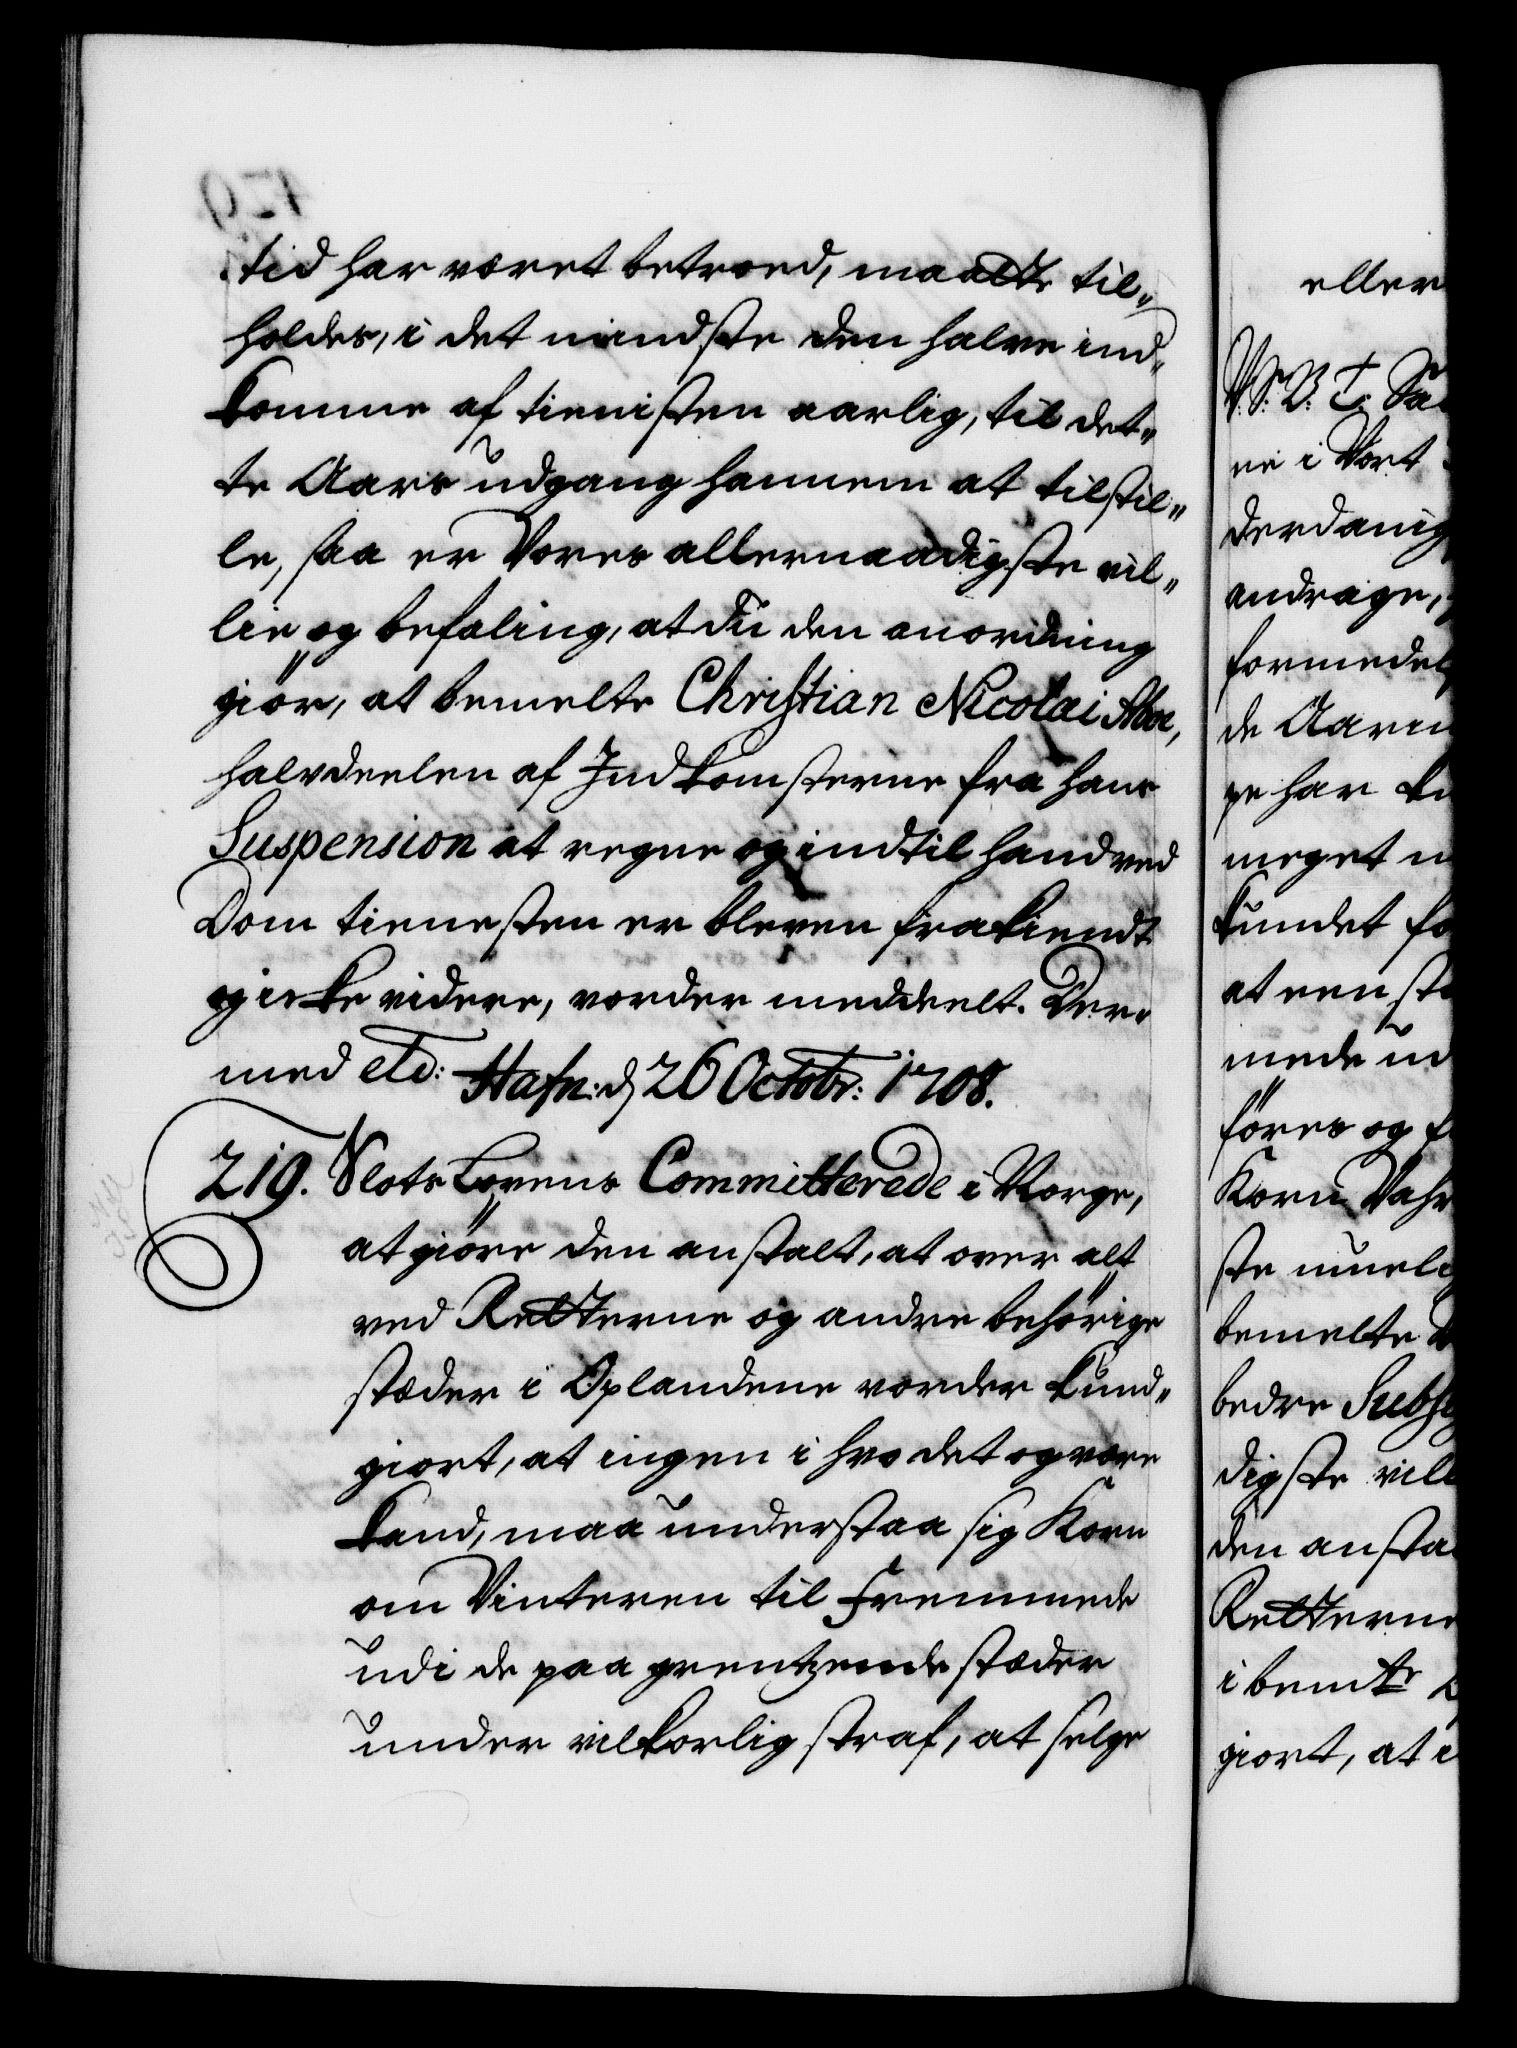 tid har været betroed, maatte til„
holdes, i det mindste den halve ind„
komme af tienisten aarlig, til det„
te Aars udgang hannem at tilstil„
le, saa er Vores allernaadigste vil„
lie og befaling, at du den anordning
giör, at bemelte Christian Nicolai
halvdeelen af Indkomsterne fra hans
Suspension at regne og indtil hand ved
Dom tienesten er bleven frakiendt
og icke videre, vorder meddeelt. Der„
med etc: Hafn: d 26 Octobr: 1708.
219. Slots Lovens Committerede i Norge,
at giöre den anstalt, at over alt
ved Retterne og andre behörige
stæder i Oplandene vorder kund„
giort, at ingen i hvo det og være
kand, maa understaa sig Korn
om Vinteren til Fremmede
udi de paa grentzende stæder
under vilkorlig straf, at selge
eller
ne i Vort
derdanig
andrage,
formedel
de Aarin
ge har
meget
kundet fo
at een st
mede ud
föres og f
Korn Vahr
ste muel
bemelte
bedre Subs
digste vil
den ansta
Retterne
i bemte
giort, at i